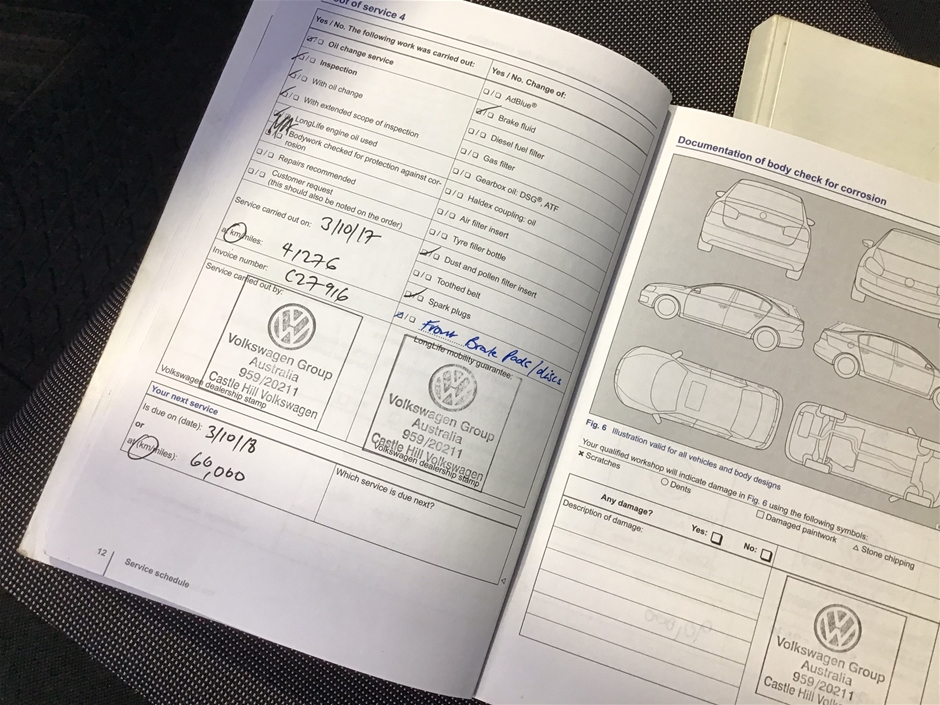 of of service 4
Yes / No. The following work was carried out:
Oil change service
Inspection
With oil change
With extended scope of inspection
LongLife engine oil used
Bodywork checked for protection against cor-
rosion
Repairs recommended
Customer request
(this should also be noted on the order)
Service carried out on: 3/10/17
at (km/miles): 41276
Invoice number: C27916
Service carried out by:
Volkswagen Group
Australia
959/20211
Castle Hill Volkswagen
Volkswagen dealership stamp
Yes / No. Change of:
AdBlue®
Brake fluid
Diesel fuel filter
Gas filter
Gearbox oil: DSG®, ATF
Haldex coupling: oil
Air filter insert
Tyre filler bottle
Dust and pollen filter insert
Toothed belt
Spark plugs
Front Brake Pads/discs
LongLife mobility guarantee:
Volkswagen Group
Australia
959/20211
Castle Hill Volkswagen
Volkswagen dealership stamp
Your next service
Is due on (date): 3/10/18
or
at (km/miles): 66,000
Which service is due next?
12
Service schedule
Documentation of body check for corrosion
Fig. 6 Illustration valid for all vehicles and body designs
Your qualified workshop will indicate damage in Fig. 6 using the following symbols:
× Scratches ○ Dents □ Damaged paintwork △ Stone chipping
Any damage? Yes: No:
Description of damage:
Volkswagen Group
Australia
959/20211
Castle Hill Volkswagen